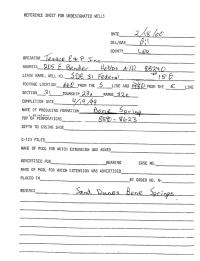 REFERENCE SHEET FOR UNDESIGNATED WELLS
DATE 2/18/00
OIL/GAS Oil
COUNTY Lea
OPERATOR Texaco E&P Inc
ADDRESS 205 E Bender Hobbs NM 88240
LEASE NAME, WELL NO. SDE 31 Federal 15
FOOTAGE LOCATION 660 FROM THE S LINE AND 1980 FROM THE E LINE
SECTION 31 TOWNSHIP 23s RANGE 32e
COMPLETION DATE 4/9/99
NAME OF PRODUCING FORMATION Bone Spring
TOP OF PERFORATIONS 8580-8623
DEPTH TO CASING SHOE
C-123 FILED
NAME OF POOL FOR WHICH EXTENSION WAS ASKED
ADVERTISED FOR HEARING CASE NO.
NAME OF POOL FOR WHICH EXTENSION WAS ADVERTISED
PLACED IN BY ORDER NO. R-
REMARKS Sand Dunes Bone Springs